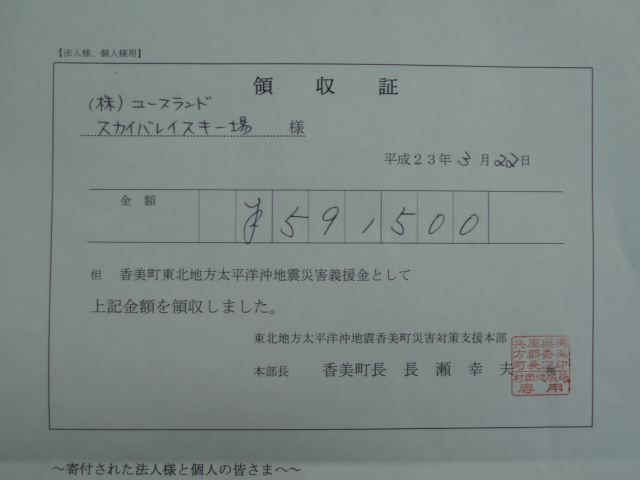 【法人様、個人様用】
領収証
(株)ユースランド
スカイバレイスキー場 様
平成23年3月22日
金額 ¥591,500
但 香美町東北地方太平洋沖地震災害義援金として
上記金額を領収しました。
東北地方太平洋沖地震香美町災害対策支援本部
本部長 香美町長 長瀬幸夫
～寄付された法人様と個人の皆さまへ～